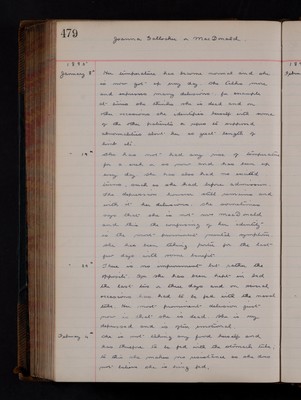 479
Joanna Gallacher or MacDonald.
1895
January 8th Her temperature has become normal and she
is now got up every day. She talks more
and expresses many delusions, for example
at times she thinks she is dead and on
other occasions she identifies herself with some
of the other patients &
about her at great length
14th She has not had any rise of temperature
for a week or so now and has been up
every day. She has also had no
as she had before admission.
The depression however still remains and
with it her delusions. She sometimes
says that she is not Mrs MacDonald
and this the confusing of her identity
is the most prominent mental symptom.
She has been taking for the last
few days with some benefit.
22nd There is no improvement but rather the
opposite. She has been kept in bed
the last two or three days and on several
occasions has had to be fed with the
tube. Her most prominent delusion just
now is that she is dead. She is very
depressed and is often emotional.
February She is not taking any food herself and
has therefore to be fed with the stomach tube.
To this she makes no resistance as she does
not believe she is being fed.